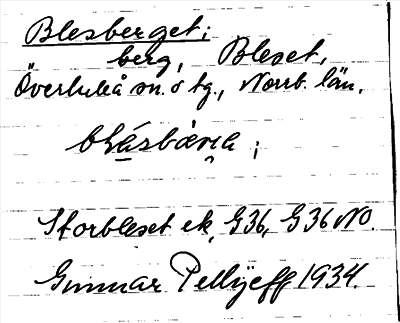 Blesberget;
berg, Bleset,
Överluleå sn. o tg., Norrb. län.
Storbleset ek, G36, G36 NO.
Gunnar Pellijeff 1934.